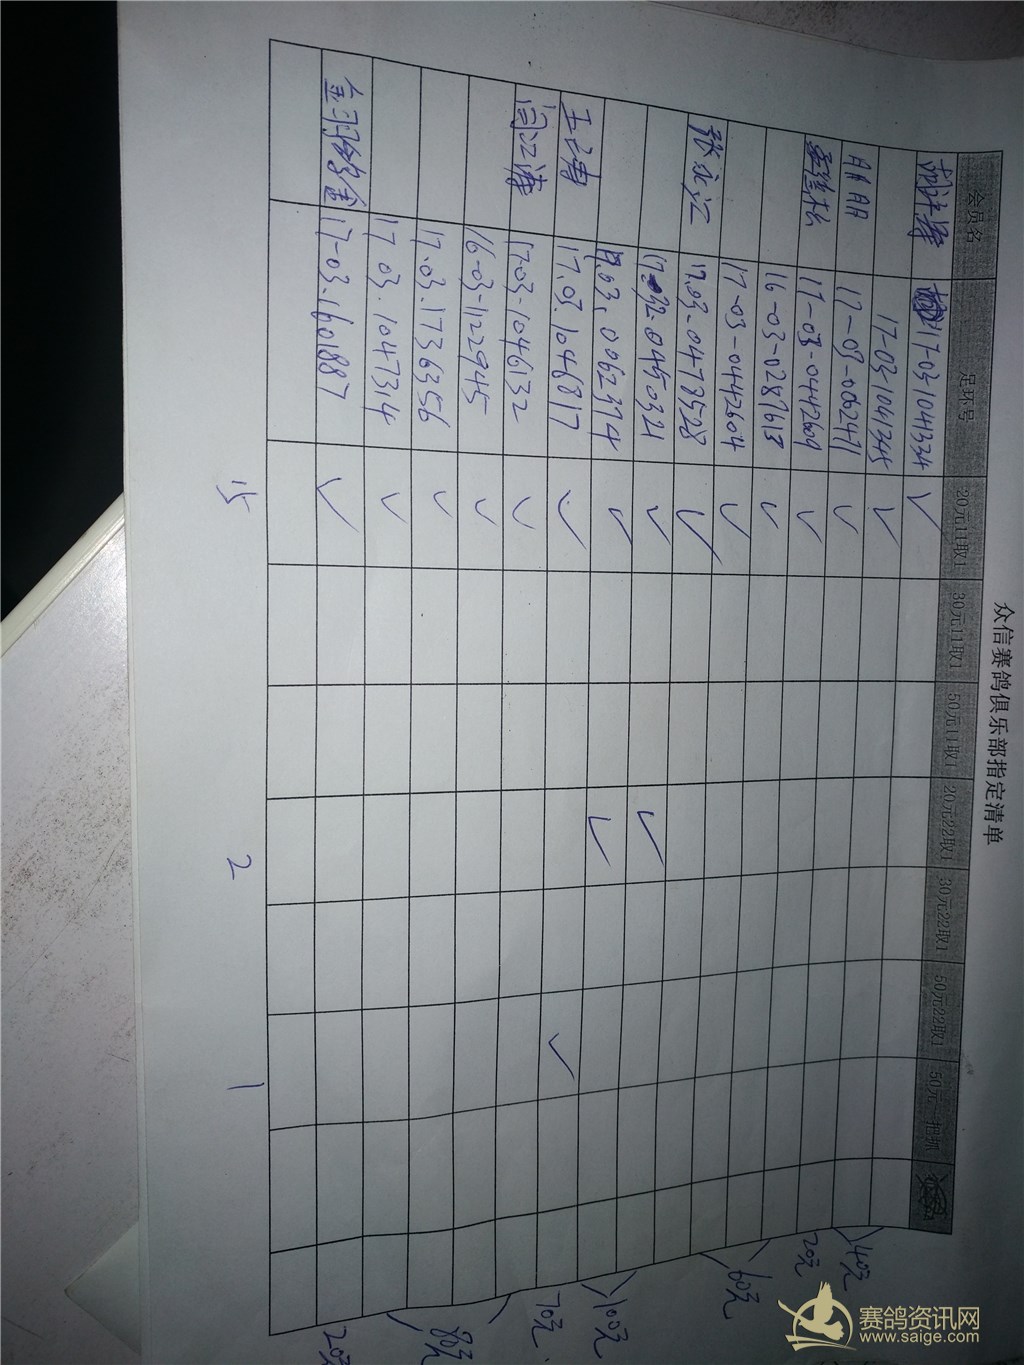 众信赛鸽俱乐部指定清单
会员名 足环号 20元11取1 30元11取1 50元11取1 20元22取1 30元22取1 50元22取1 50元一把抓
17-03-1041334 ✓
17-03-1041345 ✓
AA AA 17-03-062471 ✓
17-03-0442609 ✓
16-03-0287613 ✓
17-03-0442604 ✓
张永江 17.03-0478528 ✓
0450321 ✓ ✓
03.0062374 ✓ ✓
17.03.1046817 ✓ ✓
闫江涛 17-03-1046132 ✓
16-03-1122945 ✓
17.03.1736356 ✓
17.03.1047314 ✓
17-03-1601887 ✓
15 2 1
40元
20元
60元
100元
70元
80元
20元
赛鸽资讯网
www.saige.com